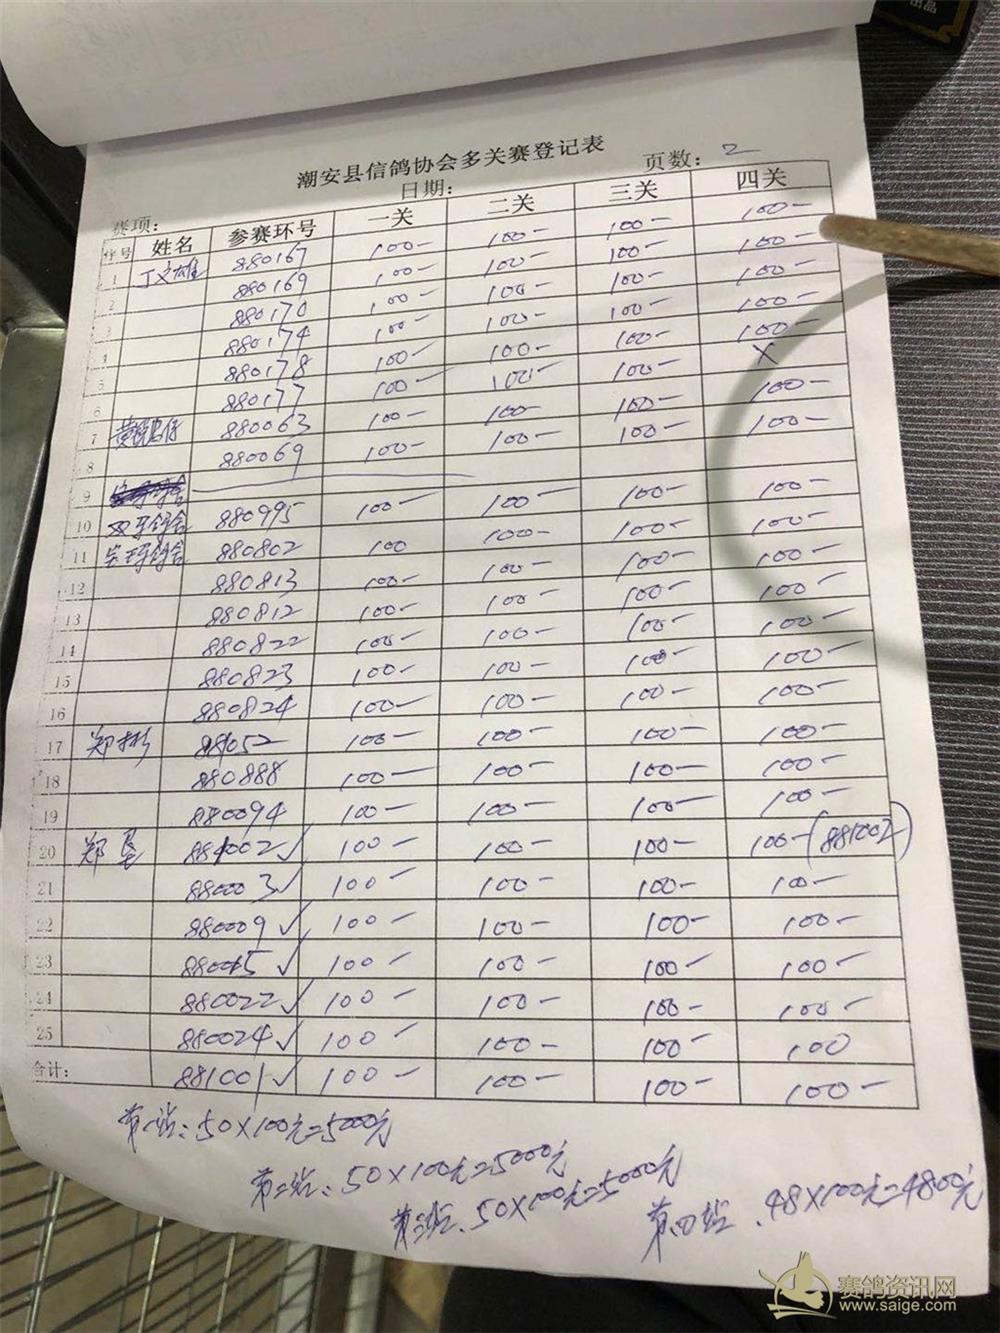 出品
潮安县信鸽协会多关赛登记表
赛项： 日期： 页数：2
序号 姓名 参赛环号 一关 二关 三关 四关
1 丁文雄 880167 100- 100- 100 100-
2 880169 100- 100- 100- 100-
3 880170 100- 100- 100- 100-
4 880174 100- 100- 100- 100-
5 880178 100- 100- 100- 100-
6 880177 100- 100- 100- X
7 880063 100- 100- 100- 100-
8 880069 100- 100- 100- 100-
9
10 880995 100- 100- 100- 100-
11 880802 100 100- 100- 100-
12 880813 100- 100- 100- 100-
13 880812 100- 100- 100- 100-
14 880822 100- 100- 100- 100-
15 880823 100- 100- 100- 100-
16 880824 100- 100- 100- 100-
17 郑彬 881052 100- 100- 100- 100-
18 880888 100- 100- 100- 100-
19 880094 100- 100- 100- 100-
20 郑 881002✓ 100- 100- 100- 100-(881002)
21 880003✓ 100- 100- 100- 100-
22 880009✓ 100- 100- 100- 100-
23 880015✓ 100- 100- 100- 100-
24 880022✓ 100- 100- 100- 100-
25 880024✓ 100- 100- 100- 100
合计： 881001✓ 100- 100- 100- 100-
第一站：50×100元=5000元
第二站：50×100元=5000元
第三站：50×100元=5000元
第四站：48×100元=4800元
赛鸽资讯网
www.saige.com